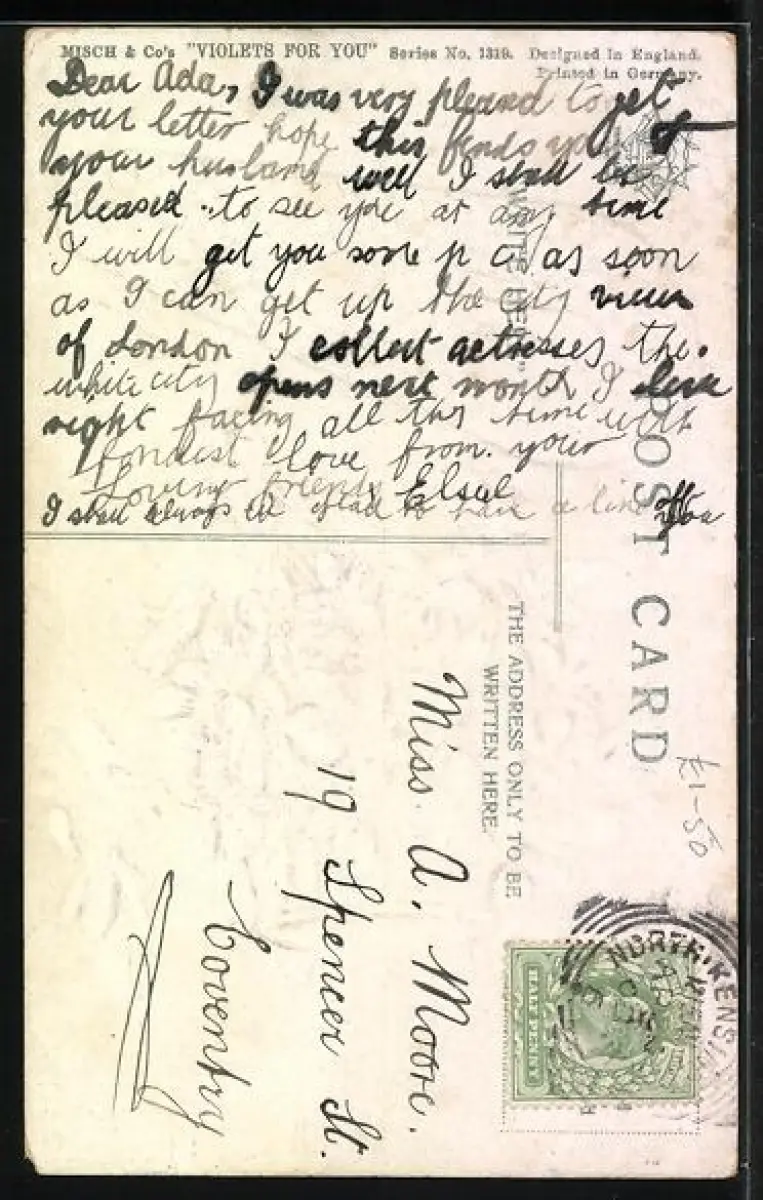 MISCH & Co's "VIOLETS FOR YOU" Series No. 1319. Designed in England.
Printed in Germany.
Dear Ada, I was very pleased to get
your letter hope this finds you &
your husband well I shall be
pleased to see you at any time
I will get you some p cs as soon
as I can get up the city views
of London I collect actresses the
white city opens next month I live
right facing all this time with
fondest love from your
loving friend Elsie
I shall always be glad to have a line off you
WRITE HERE
POST CARD
THE ADDRESS ONLY TO BE
WRITTEN HERE.
£1-50
Miss. A. Moore.
19 Spencer St.
Coventry
HALF PENNY
NORTH KENS